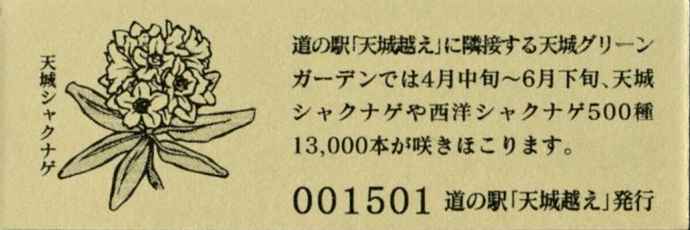 天城シャクナゲ
道の駅｢天城越え｣に隣接する天城グリーン
ガーデンでは4月中旬〜6月下旬､天城
シャクナゲや西洋シャクナゲ500種
13,000本が咲きほこります。
001501 道の駅｢天城越え｣発行